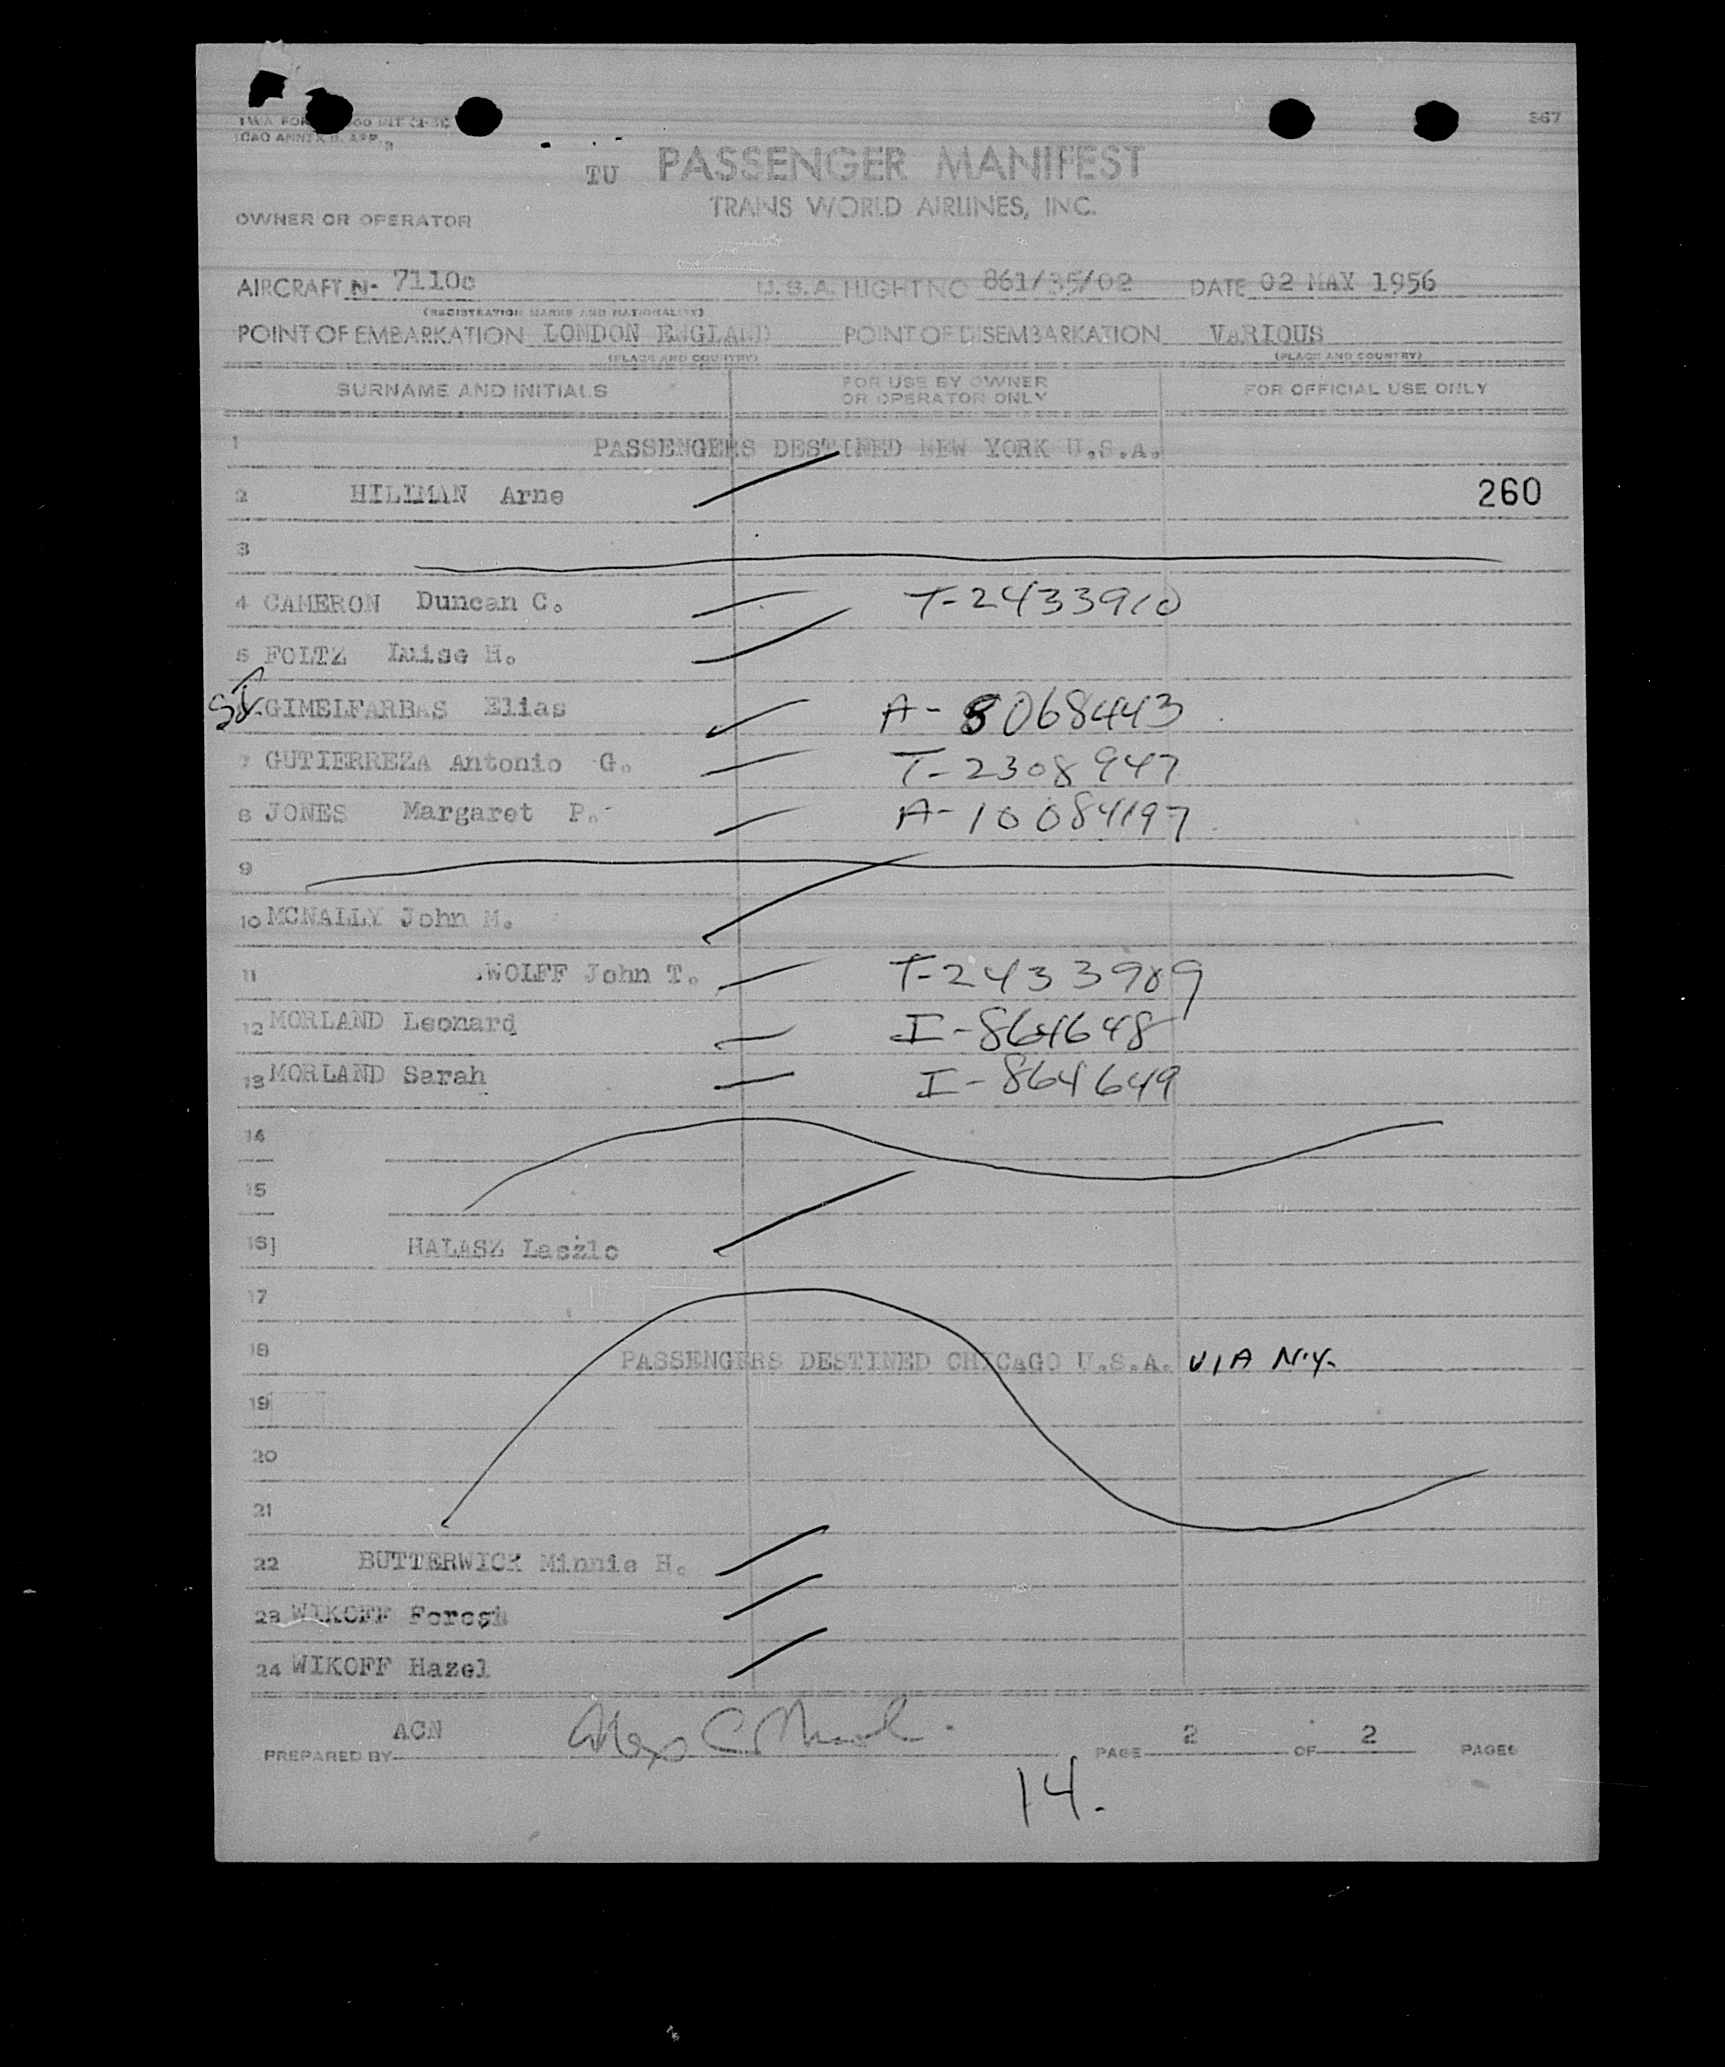 367
ICAO ANNEX 9, APP. 3
TU PASSENGER MANIFEST
TRANS WORLD AIRLINES, INC.
OWNER OR OPERATOR
AIRCRAFT N- 7110C U.S.A. FLIGHT NO 861/35/02 DATE 02 MAY 1956
(REGISTRATION MARKS AND NATIONALITY)
POINT OF EMBARKATION LONDON ENGLAND POINT OF DISEMBARKATION VARIOUS
(PLACE AND COUNTRY) (PLACE AND COUNTRY)
SURNAME AND INITIALS FOR USE BY OWNER OR OPERATOR ONLY FOR OFFICIAL USE ONLY
1 PASSENGERS DESTINED NEW YORK U.S.A.
2 HILIMAN Arne 260
3
4 CAMERON Duncan C. T-2433910
5 FOLTZ Luise H.
GIMELFARBAS Elias A-8068443
7 GUTIERREZA Antonio G. T-2308947
8 JONES Margaret P. A-10084197
9
10 MCNALLY John M.
11 WOLFF John T. T-2433909
12 MORLAND Leonard I-864648
13 MORLAND Sarah I-864649
14
15
16 HALASZ Laszlo
17
18 PASSENGERS DESTINED CHICAGO U.S.A. VIA N.Y.
19
20
21
22 BUTTERWICK Minnie H.
23 WIKOFF
24 WIKOFF Hazel
PREPARED BY ACN PAGE 2 OF 2 PAGES
14.